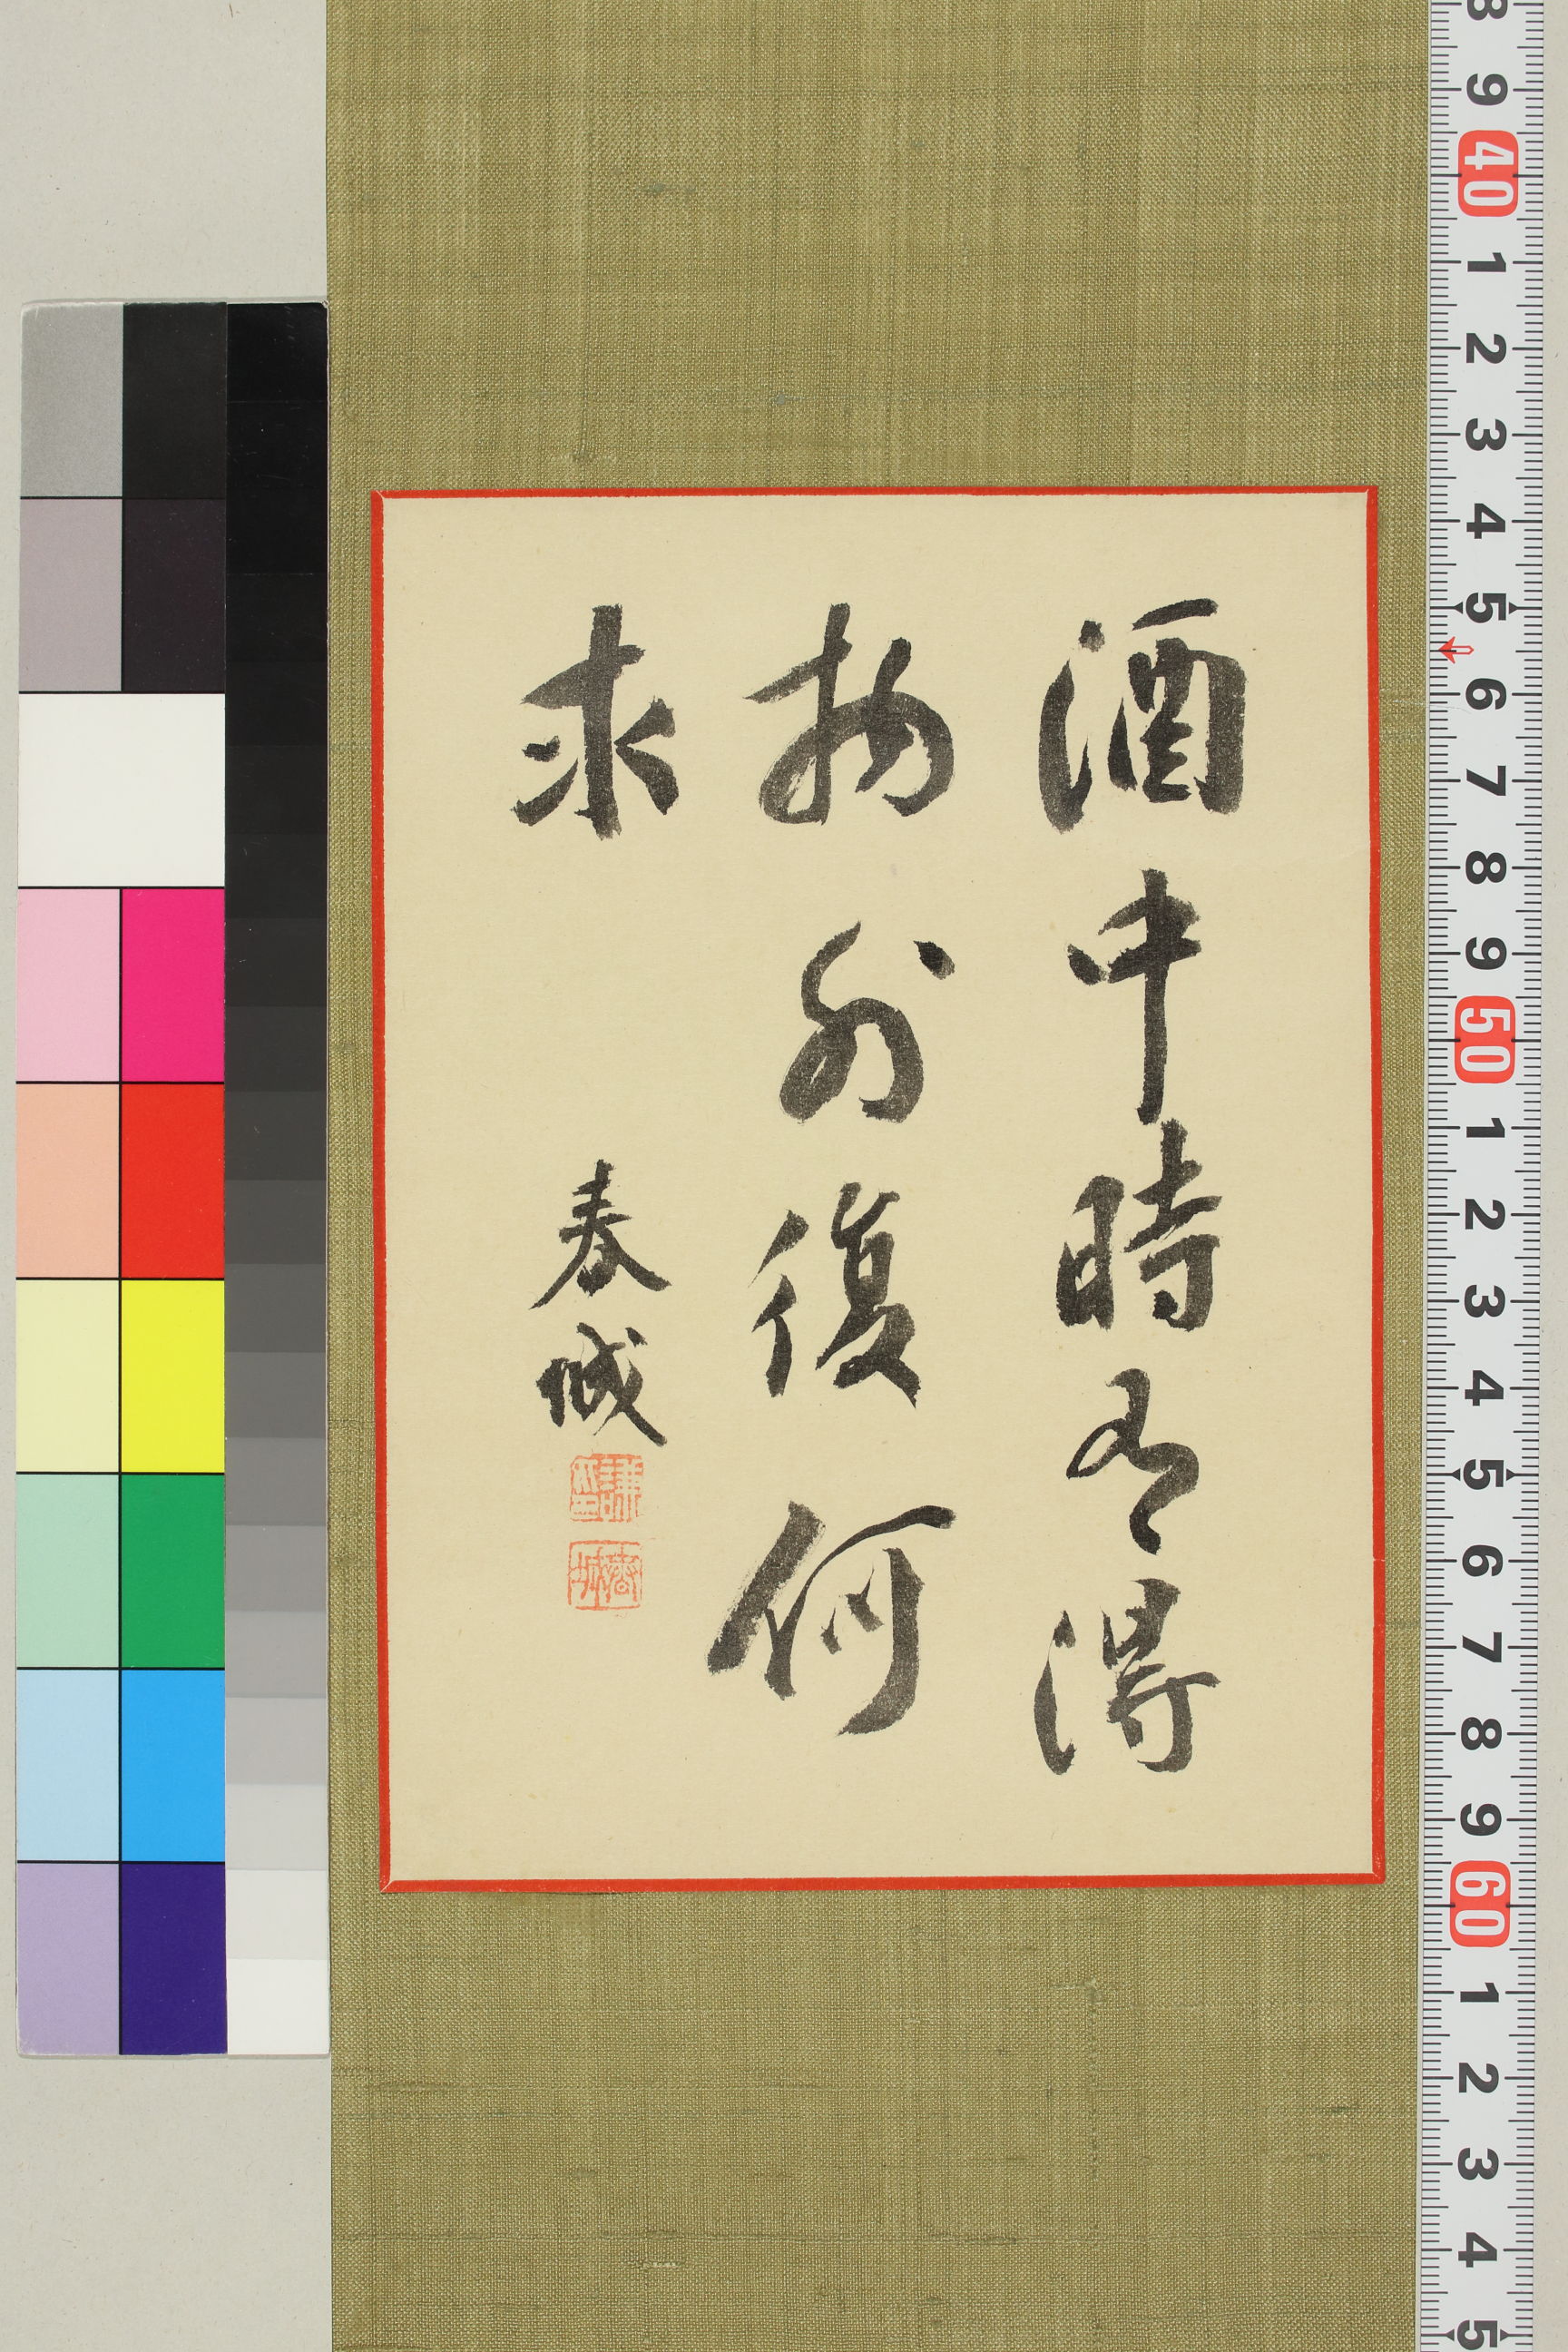 酒中時有得
物外復何
求
春城
謙吉
春城
8 9 40 1 2 3 4 5 6 7 8 9 50 1 2 3 4 5 6 7 8 9 60 1 2 3 4 5